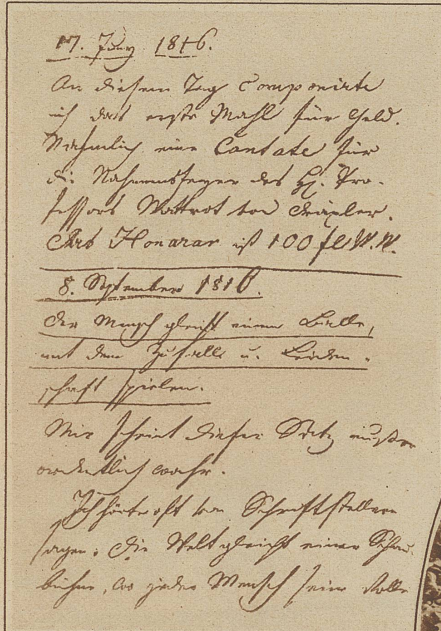 17. Juny 1816.
An diesem Tag componirte
ich das erste Mahl für Geld.
Nähmlich eine Cantate für
die Nahmensfeyer des H. Pro-
fessors Wattrot von Dräxler.
Das Honorar ist 100 fl W.W.
8. September 1816.
Der Mensch gleicht einem Balle,
mit dem Zufall u. Leiden-
schaft spielen.
Mir scheint dieser Satz außer-
ordentlich wahr.
Ich hörte oft von Schriftstellern
sagen: Die Welt gleicht einer Schau-
bühne, wo jeder Mensch seine Rolle